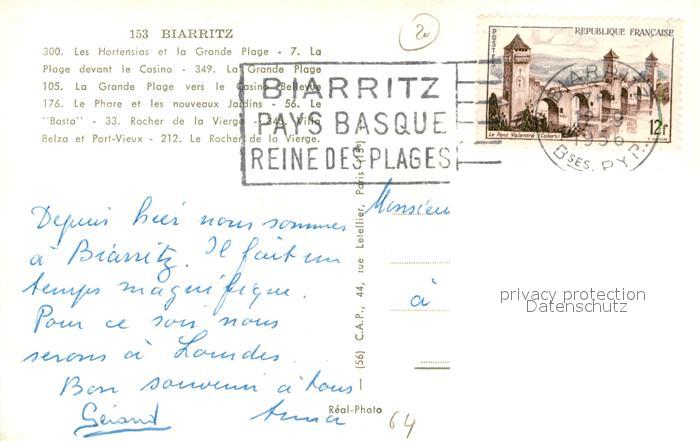 153 BIARRITZ
300. Les Hortensias et la Grande Plage - 7. La
Plage devant le Casino - 349. La Grande Plage
105. La Grande Plage vers le Casino Bellevue
176. Le Phare et les nouveaux Jardins - 56. Le
"Basta" - 33. Rocher de la Vierge - 345. Villa
Belza et Port-Vieux - 212. Le Rocher de la Vierge.
2
POSTES
REPUBLIQUE FRANÇAISE
Le Pont Valentré (Cahors)
12f
BIARRITZ
1956
BSES. PYR.
BIARRITZ
PAYS BASQUE
REINE DES PLAGES
Depuis hier nous sommes
à Biarritz. Il fait un
temps magnifique.
Pour ce soir nous
serons à Lourdes.
Bon souvenir à tous
Gérard Anna
Monsieur
à
(56) C.A.P., 44, rue Letellier, Paris (15e)
Réal-Photo
64
privacy protection
Datenschutz